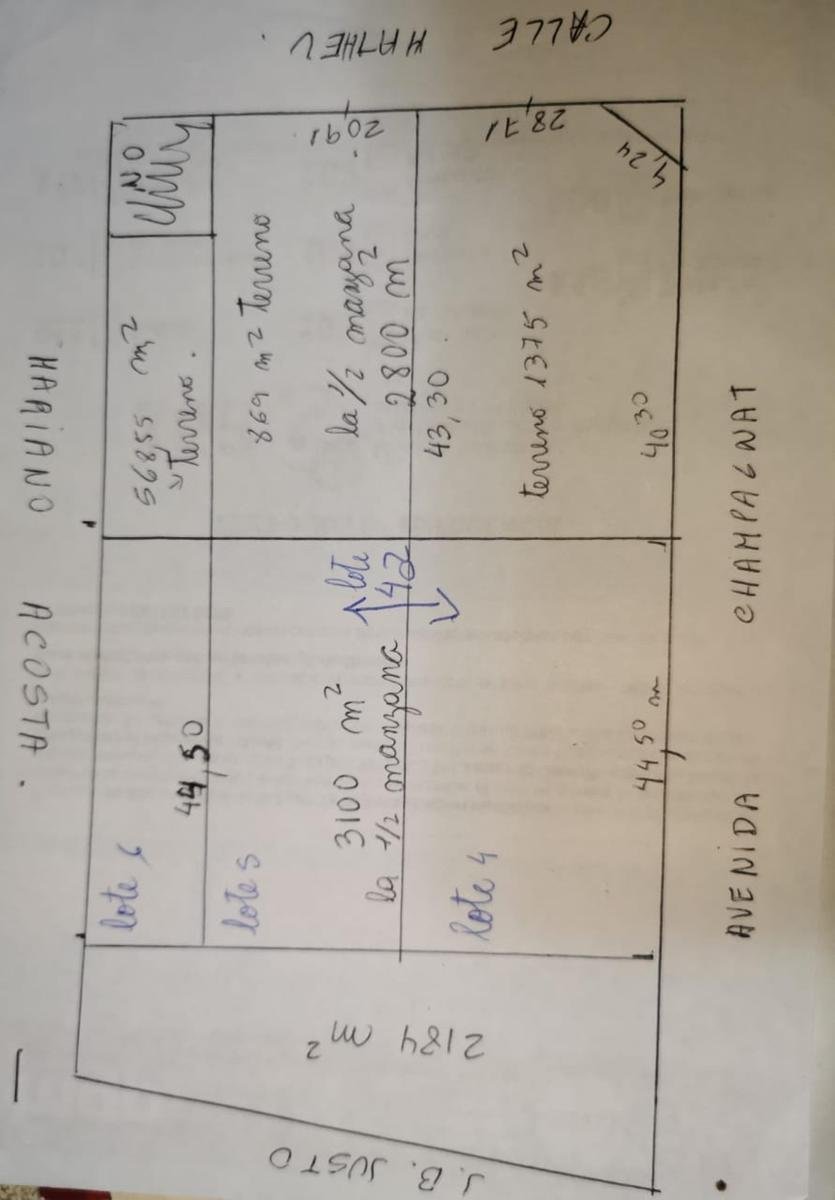 CALLE MATHEU.
MARIANO ACOSTA.
NO
568,55 m²
terreno.
869 m² terreno
20,91
la 1/2 manzana
2800 m²
43,30
28,71
4,24
terreno 1375 m²
40,30
lote
42
lote 6
44,50
lote 5
3100 m²
la 1/2 manzana
lote 4
44,50 m
AVENIDA CHAMPAGNAT
2184 m²
J. B. JUSTO